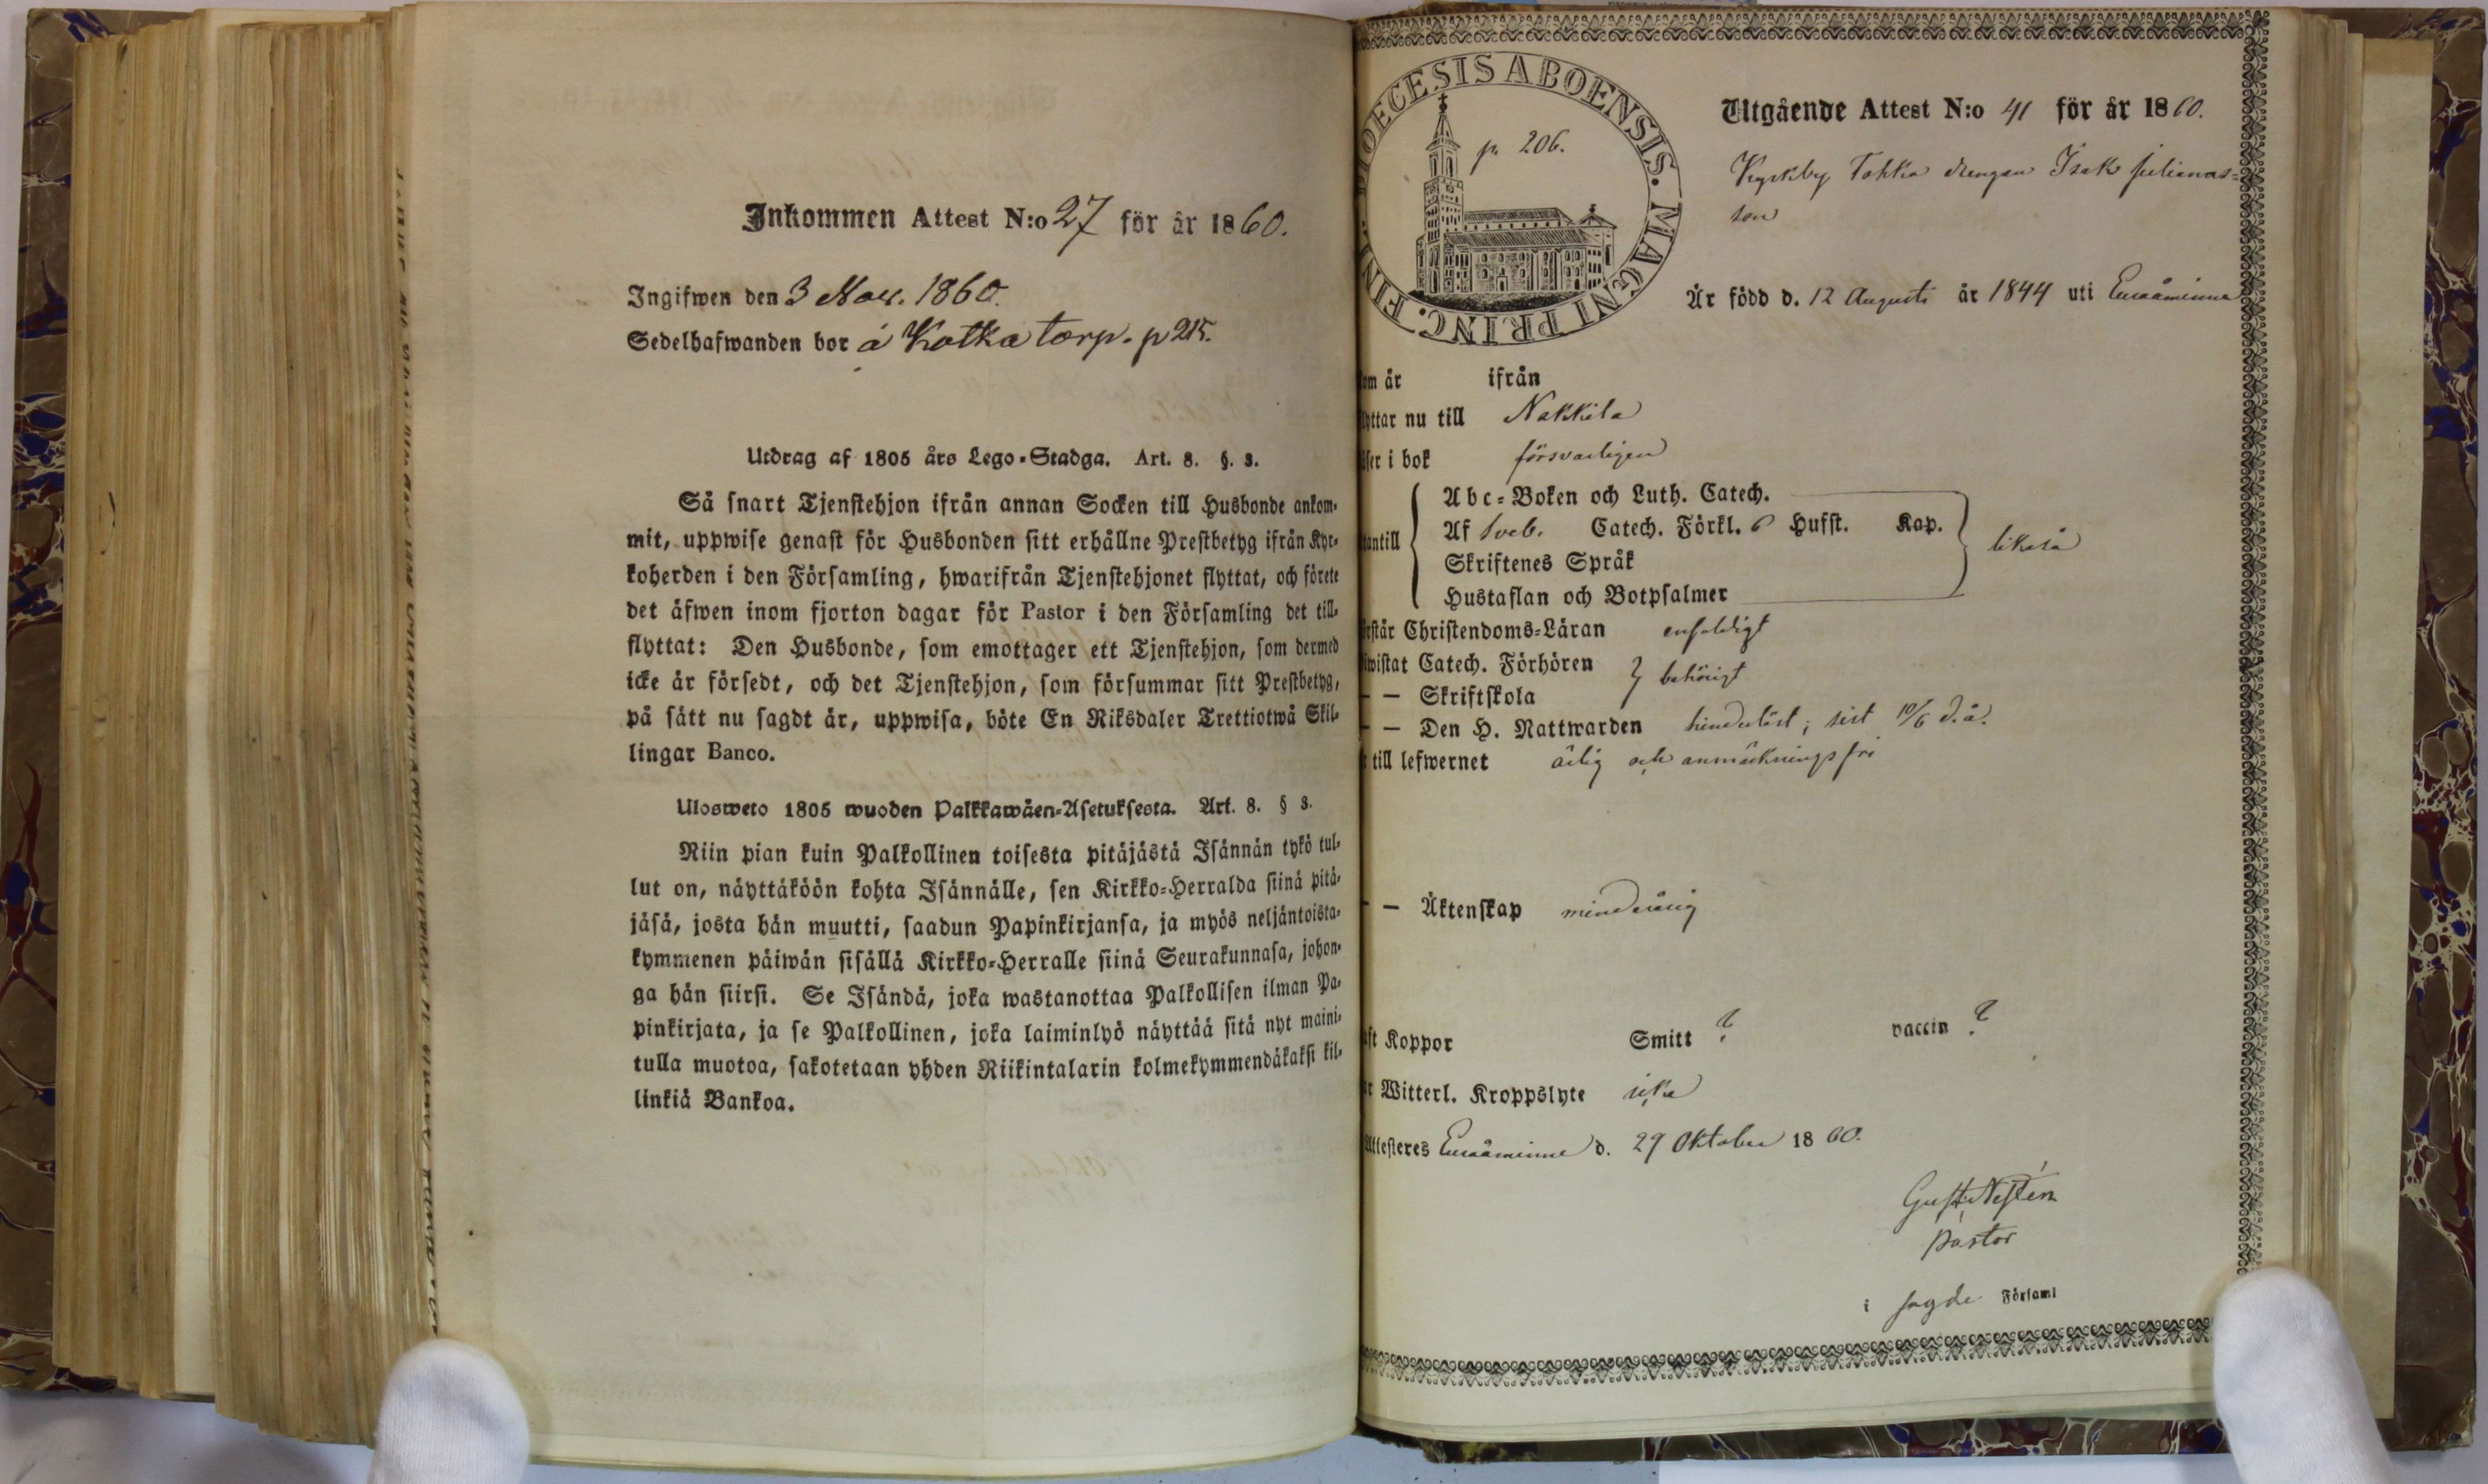 Inkommen Attest N:o 27 för år 1860.
Ingifwen den 3 Nov. 1860.
Sedelhafwanden bor å Kotka torp. p 215.
Utdrag af 1805 års Lego-Stadga. Art. 8. §. 3.
Så snart Tjenstehjon ifrån annan Socken till Husbonde ankom-
mit, uppwise genast för Husbonden sitt erhållne Prestbetyg ifrån Kyr-
koherden i den Församling, hwarifrån Tjenstehjonet flyttat, och förete
det äfwen inom fjorton dagar för Pastor i den Församling det till-
flyttat: Den Husbonde, som emottager ett Tjenstehjon, som dermed
icke är försedt, och det Tjenstehjon, som försummar sitt Prestbetyg,
på sätt nu sagdt är, uppwisa, böte En Riksdaler Trettiotwå Skil-
lingar Banco.
Ulosweto 1805 wuoden Palkkawäen-Asetuksesta. Art. 8. § 3.
Niin pian kuin Palkollinen toisesta pitäjästä Isännän tykö tul-
lut on, näyttäköön kohta Isännälle, sen Kirkko-Herralda siinä pitä-
jäsä, josta hän muutti, saadun Papinkirjansa, ja myös neljäntoista-
kymmenen päiwän sisällä Kirkko-Herralle siinä Seurakunnasa, johon-
ga hän siirsi. Se Isändä, joka wastanottaa Palkollisen ilman Pa-
pinkirjata, ja se Palkollinen, joka laiminlyö näyttää sitä nyt maini-
tulla muotoa, sakotetaan yhden Riikintalarin kolmekymmendäkaksi kil-
linkiä Bankoa.
DIOECESIS ABOENSIS. MAGNI PRINC. FINL.
p. 206.
Utgående Attest N:o 41 för år 1860.
Kyrkby Tokka drengen Isak Julianas-
son
Är född d. 12 Augusti år 1844 uti Euraåminne
om år ifrån
yttar nu till Nakkila
äser i bok försvarligen
tantill
Abc-Boken och Luth. Catech.
Af Sveb. Catech. Förkl. 6 Hufst. Kap.
Skriftenes Språk
Hustaflan och Botpsalmer
likaså
rstår Christendoms-Läran enfaldigt
iwistat Catech. Förhören
— — Skriftskola
behörigt
— — Den H. Nattwarden hinderlöst; sist 10/6 d.å.
till lefwernet ärlig och anmärkningsfri
— — Äktenskap minderårig
ft Koppor Smitt ? vaccin ?
r Witterl. Kroppslyte icke
Attesteres Euraåminne d. 29 Oktober 1860.
Gust. Neslén
Pastor
i sagde Församl